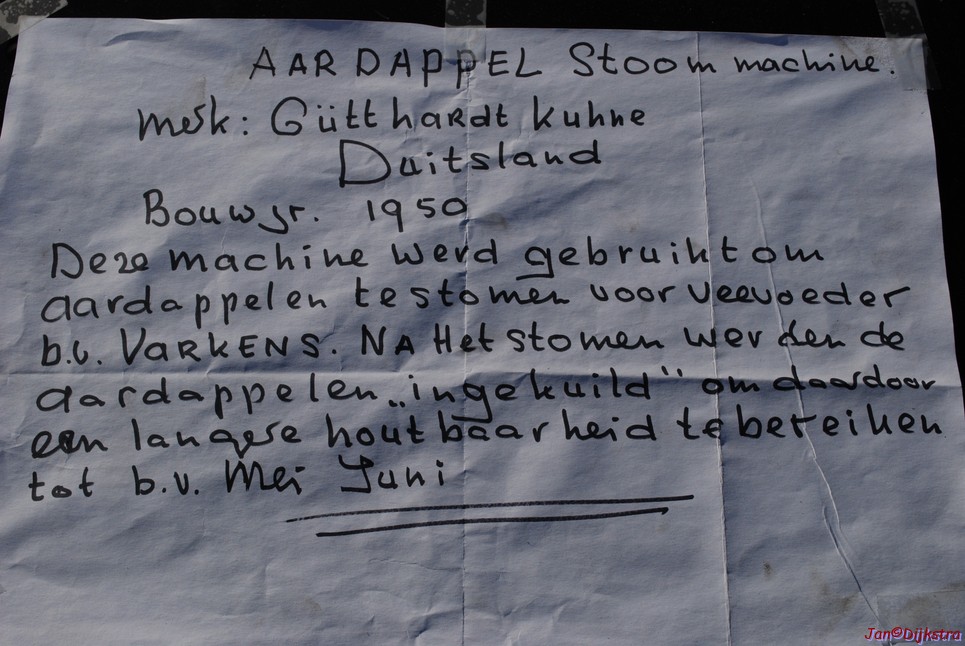 AARDAPPEL Stoom machine.
merk: Gütthardt kuhne
Duitsland
Bouwjr. 1950
Deze machine werd gebruikt om
aardappelen te stomen voor veevoeder
b.v. VARKENS. NA Het stomen werden de
aardappelen „ingekuild" om daardoor
een langere houtbaarheid te bereiken
tot b.v. Mei Juni
Jan©Dijkstra